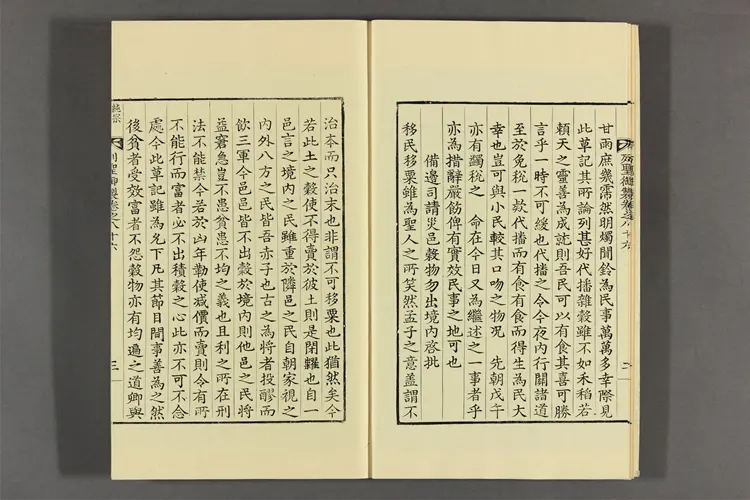 列聖御製卷之八十六
二
甘雨庶幾霈然明燭聞鈴為民事萬萬多幸際見
此草記其所論列甚好代播雜穀雖不如禾稻若
賴天之靈善為成就則吾民可以有食其喜可勝
言乎一時不可緩也代播之令今夜內行關諸道
至於免稅一款代播而有食有食而得生為民大
幸也豈可與小民較其口吻之物況 先朝戊午
亦有蠲稅之 命在今日又為繼述之一事者乎
亦為措辭嚴飭俾有實效民事之地可也
備邊司請災邑穀物勿出境內啓批
移民移粟雖為聖人之所笑然孟子之意蓋謂不
治本而只治末也非謂不可移粟也此猶然矣今
若此土之穀使不得賣於彼土則是閉糶也自一
邑言之境內之民雖重於隣邑之民自朝家視之
內外八方之民皆吾赤子也古之為將者投醪而
飲三軍今邑邑皆不出穀於境內則他邑之民將
益窘急豈不患貧患不均之義也且利之所在刑
法不能禁令若於凶年勒使減價而賣則令有所
不能行而富者必不出積穀之心此亦不可不念
處今此草記雖為允下凡其節目間事善為之然
後貧者受效富者不怨穀物亦有均遍之道卿與
純宗
列聖御製卷之八十六
三